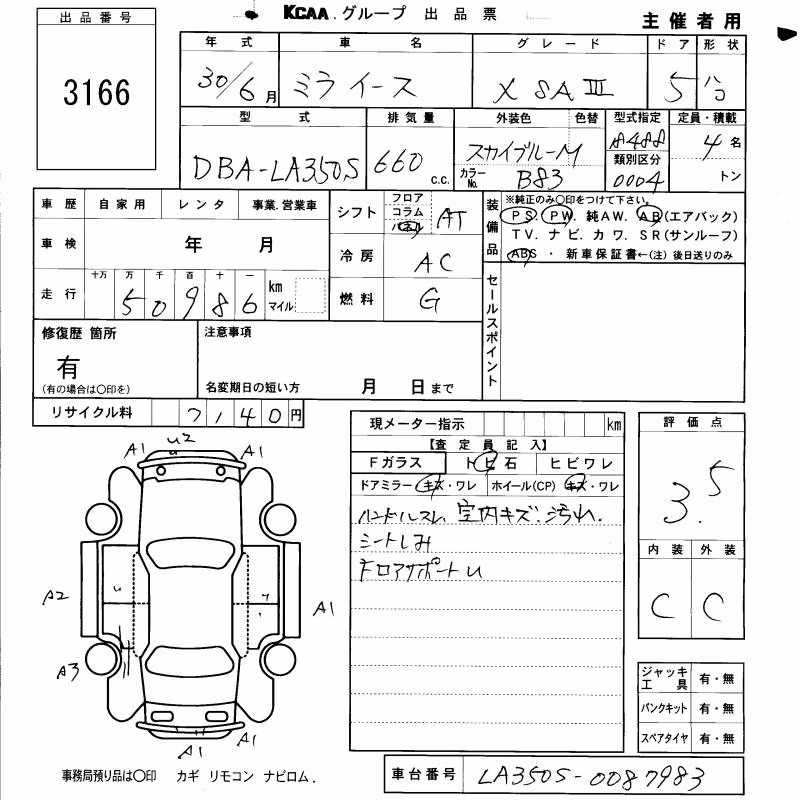 KCAA.グループ 出品票
主催者用
出品番号
3166
年式 車名 グレード ドア 形状
30/6月 ミライース X SAⅢ 5 ハコ
型式 排気量 外装色 色替 型式指定 定員・積載
DBA-LA350S 660 c.c. スカイブルーM 18488 4名
カラーNo. B83 類別区分 0004 トン
車歴 自家用 レンタ 事業.営業車
シフト フロア コラム パネル AT
装備品 ※純正のみ〇印をつけて下さい。
PS. PW. 純AW. AB(エアバック)
TV. ナビ. カワ. SR(サンルーフ)
ABS ・ 新車保証書←(注) 後日送りのみ
車検 年 月
冷房 AC
走行 十万 万 千 百 十 一
50986 km マイル
燃料 G
セールスポイント
修復歴 箇所
有
(有の場合は〇印を)
注意事項
名変期日の短い方 月 日まで
リサイクル料 7140円
現メーター指示 km
【査定員記入】
Fガラス トビ石 ヒビワレ
ドアミラー キズ・ワレ ホイール(CP) キズ・ワレ
ハンドルスレ 室内キズ.汚れ.
シートしみ
FロアサポートU
評価点
3.5
内装 外装
C C
A1 U2 A1
A2 A1
A3
A1 A1
ジャッキ工具 有・無
パンクキット 有・無
スペアタイヤ 有・無
事務局預り品は〇印 カギ リモコン ナビロム.
車台番号 LA350S-0087983